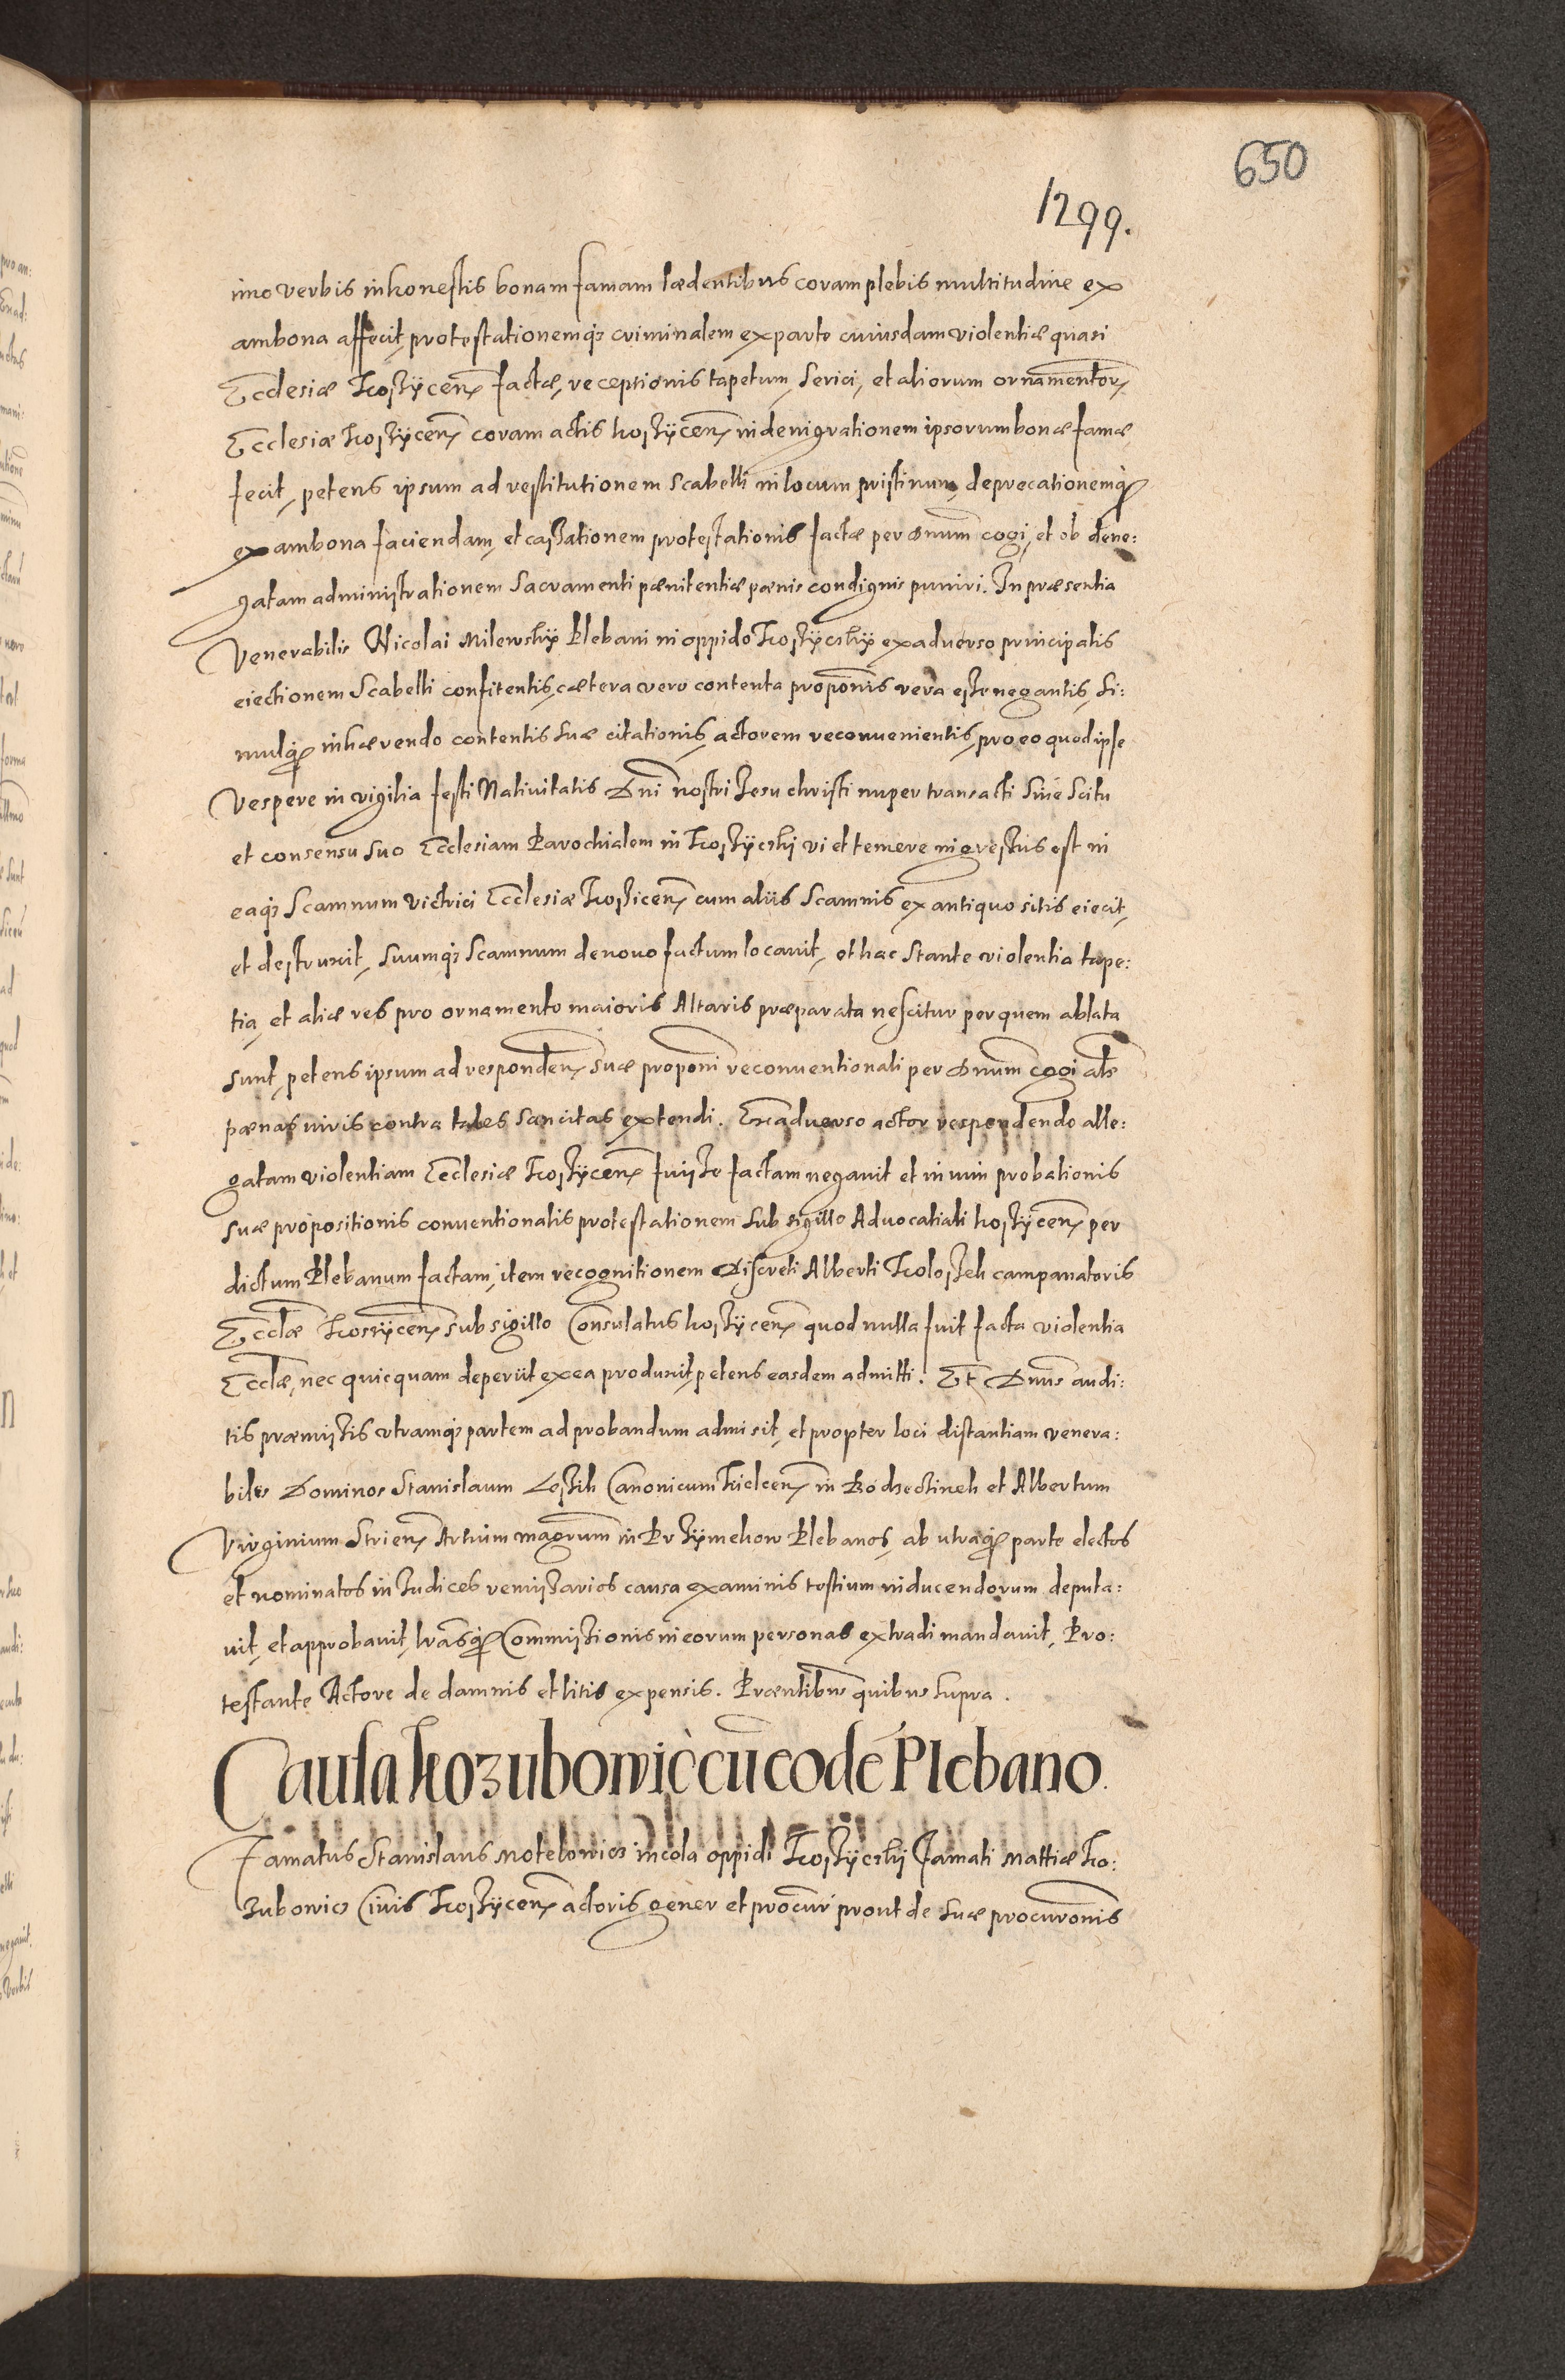 650
1299.
imo verbis inhonestis bonam famam lædentibus coram plebis multitudine ex
ambona affecit, protestationemq; criminalem ex parte cuiusdam violentiæ quasi
Ecclesiæ Koszÿcen̄ factæ, receptionis tapetum, serici, et aliorum ornamentor̄
Ecclesiæ Koszÿcen̄ coram actis koszÿcen̄ in denigrationem ipsorum bonæ famæ
fecit, petens ipsum ad restitutionem scabelli in locum pristinum, deprecationemq;
ex ambona faciendam, et cassationem protestationis factæ per Dnum cogi, et ob dene:
gatam administrationem Sacramenti pænitentiæ pænis condignis puniri. In præsentia
Venerabilis Nicolai Milewskÿ Plebani in oppido Koszÿczkÿ ex adverso principalis
eiectionem Scabelli confitentis, cætera vero contenta propōnis vera esse negantis, si:
mulq; inhærendo contentis suæ citationis, actorem reconvenientis, pro eo quod ipse
Vespere in vigilia festi Nativitatis Dn̄i nostri Jesu christi nuper transacti sine scitu
et consensu suo Ecclesiam Parochialem in Koszÿczkj vi et temere ingressus est in
eaq; Scamnum victrici Ecclesiæ Koszicen̄ cum aliis Scamnis ex antiquo sitis eiecit,
et destruxit, suumq; Scamnum de novo factum locavit, et hac stante violentia tape:
tia, et aliæ res pro ornamento maioris Altaris præparata nescitur per quem ablata
sunt, petens ipsum ad responden̄ suæ propōni reconventionali per Dnum̄ cogi als̄
pænas iuris contra tales sancitas extendi. Ex adverso actor respondendo alle:
gatam violentiam Ecclesiæ Koszÿcen̄ fuisse factam negavit et in vim probationis
suæ propositionis conventionalis protestationem sub sigillo Advocatiali koszÿcen̄ per
dictum Plebanum factam, item recognitionem Discreti Alberti Koloszek campanatoris
Eccl̄æ Koszÿcen̄ sub sigillo Consulatus koszÿcen̄ quod nulla fuit facta violentia
Eccl̄æ, nec quicquam deperiit ex ea produxit, petens easdem admitti. Et Dnus̄ audi:
tis præmissis utramq; partem ad probandum admisit, et propter loci distantiam venera:
biles Dominos Stanislaum Canonicum Kielcen̄ in et Albertum
Virginium Strien̄ Artium magrum̄ in Plebanos, ab utraq; parte electos
et nominatos in Judices remissarios causa examinis testium inducendorum deputa:
vit, et approbavit, lrasq; Commissionis in eorum personas extradi mandavit, Pro:
testante Actore de damnis et litis expensis. Præntibus̄ quibus supra.
Causa Kozubowic cū eodē Plebano.
Famatus Stanislaus Motelowicz incola oppidi Koszÿczkj Famati Mattiæ Ko:
zubowicz Civis Koszÿcen̄ actoris gener et procur̄ prout de suæ procurōnis